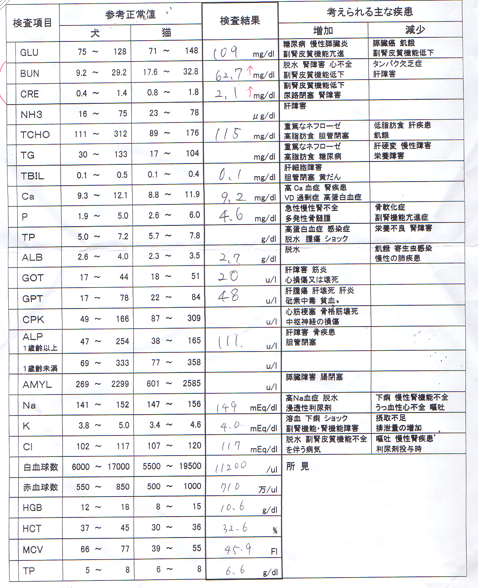 検査項目 参考正常値 検査結果 考えられる主な疾患
犬 猫 増加 減少
GLU 75 ～ 128 71 ～ 148 109 mg/dl 糖尿病 慢性膵臓炎 膵臓癌 飢餓
副腎皮質機能亢進 副腎皮質機能低下
BUN 9.2 ～ 29.2 17.6 ～ 32.8 62.7↑ mg/dl 脱水 腎障害 心不全 タンパク欠乏症
副腎皮質機能低下 肝障害
CRE 0.4 ～ 1.4 0.8 ～ 1.8 2.1↑ mg/dl 副腎皮質機能低下
尿路閉塞 腎障害
NH3 16 ～ 75 23 ～ 78 μg/dl 肝障害
TCHO 111 ～ 312 89 ～ 176 115 mg/dl 重篤なネフローゼ 低脂肪食 肝疾患
高脂肪食 胆管閉塞 飢餓
TG 30 ～ 133 17 ～ 104 mg/dl 重篤なネフローゼ 肝硬変 慢性障害
高脂肪食 糖尿病 栄養障害
TBIL 0.1 ～ 0.5 0.1 ～ 0.4 0.1 mg/dl 肝細胞障害
胆管閉塞 黄だん
Ca 9.3 ～ 12.1 8.8 ～ 11.9 9.2 mg/dl 高Ca血症 腎疾患
VD過剰症 高蛋白血症
P 1.9 ～ 5.0 2.6 ～ 6.0 4.6 mg/dl 急性慢性腎不全 骨軟化症
多発性骨髄腫 副腎機能亢進症
TP 5.0 ～ 7.2 5.7 ～ 7.8 g/dl 高蛋白血症 感染症 栄養不良 腎障害
脱水 腫瘍 ショック
ALB 2.6 ～ 4.0 2.3 ～ 3.5 2.7 g/dl 脱水 飢餓 寄生虫感染
慢性の肺疾患
GOT 17 ～ 44 18 ～ 51 20 u/l 肝障害 筋炎
心損傷又は壊死
GPT 17 ～ 78 22 ～ 84 48 u/l 肝腫瘍 肝壊死 肝炎
砒素中毒 貧血
CPK 49 ～ 166 87 ～ 309 u/l 心筋梗塞 骨格筋壊死
中枢神経の損傷
ALP 47 ～ 254 38 ～ 165 111 u/l 肝障害 骨疾患
1歳齢以上 胆管閉塞
1歳齢未満 69 ～ 333 77 ～ 358 u/l
AMYL 269 ～ 2299 601 ～ 2585 u/l 膵臓障害 腸閉塞
Na 141 ～ 152 147 ～ 156 149 mEq/dl 高Na血症 脱水 下痢 慢性腎機能不全
浸透性利尿剤 うっ血性心不全 嘔吐
K 3.8 ～ 5.0 3.4 ～ 4.6 4.0 mEq/dl 溶血 下痢 ショック 摂取不足
副腎機能・腎機能障害 排泄量の増加
Cl 102 ～ 117 107 ～ 120 117 mEq/dl 脱水 副腎皮質機能不全 嘔吐 慢性腎疾患
を伴う病気 利尿剤投与時
白血球数 6000 ～ 17000 5500 ～ 19500 11200 /ul 所見
赤血球数 550 ～ 850 500 ～ 1000 710 万/ul
HGB 12 ～ 18 8 ～ 15 10.6 g/dl
HCT 37 ～ 45 30 ～ 36 32.6 %
MCV 66 ～ 77 39 ～ 55 45.9 Fl
TP 5 ～ 8 6 ～ 8 6.6 g/dl